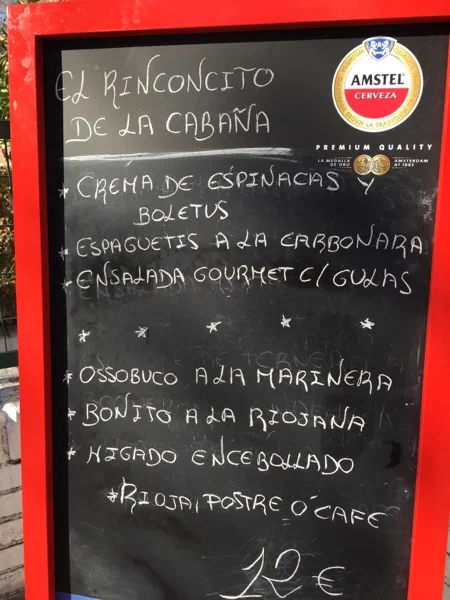 EL RINCONCITO
DE LA CABAÑA
AMSTEL
CERVEZA
PREMIUM QUALITY
LA MEDALLA DE ORO
AMSTERDAM Aº 1883
* CREMA DE ESPINACAS Y
BOLETUS
* ESPAGUETIS A LA CARBONARA
* ENSALADA GOURMET C/ GULAS
* * * * *
* OSSOBUCO A LA MARINERA
* BONITO A LA RIOJANA
* HIGADO ENCEBOLLADO
* RIOJA, POSTRE O' CAFE
12 €